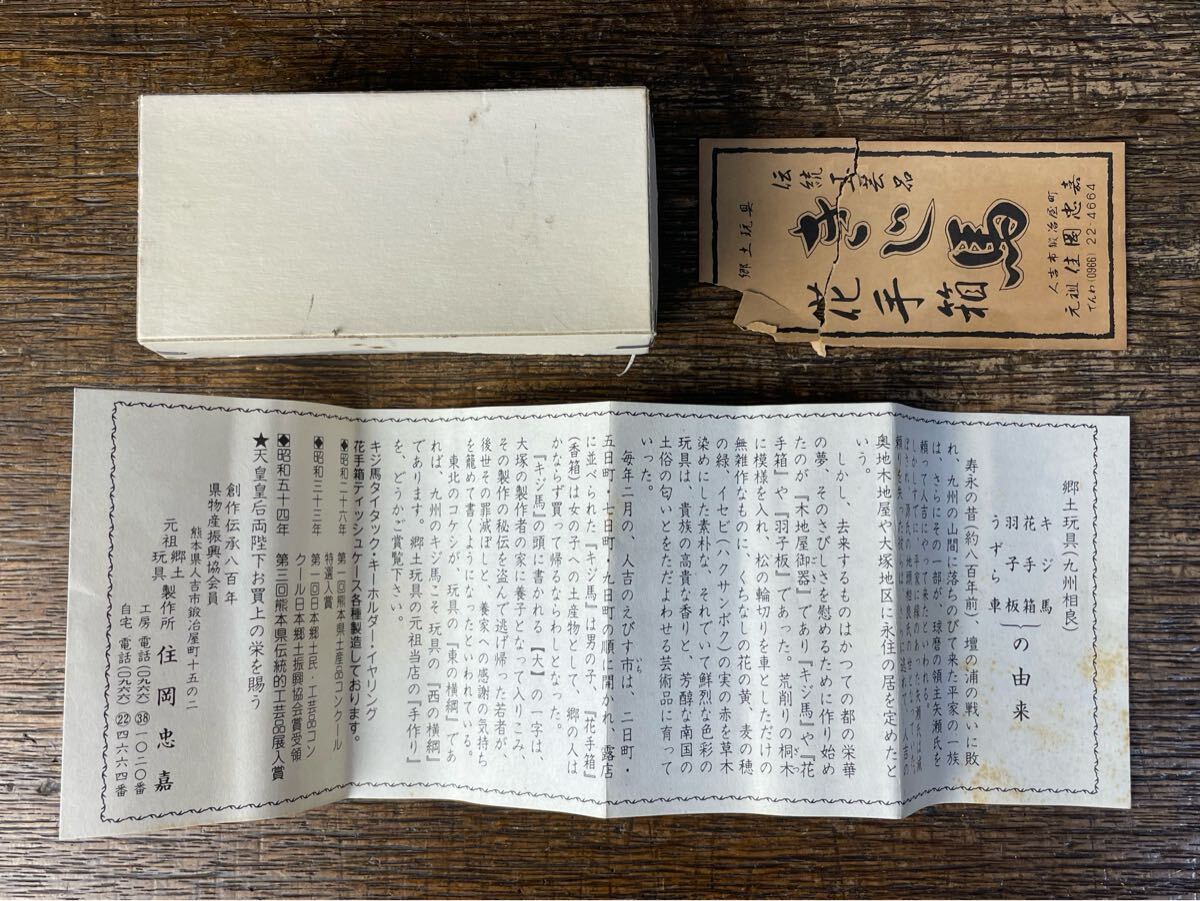 伝統工芸品
郷土玩具
きじ馬
花手箱
人吉市鍛冶屋町
元祖 住岡忠嘉
でんわ(0966)22-4664
郷土玩具(九州相良)
キジ馬
花手箱
羽子板
うずら車
の由来
寿永の昔(約八百年前)、壇の浦の戦いに敗
れ、九州の山間に落ちのびて来た平家の一族
は、さらにその一部が、球磨の領主矢瀬氏を
頼って人吉にやって来たといわれる。
しかしすでに、平家に縁のあった矢瀬氏は滅
奥地木地屋や大塚地区に永住の居を定めたと
いう。
しかし、去来するものはかつての都の栄華
の夢、そのさびしさを慰めるために作り始め
たのが、『木地屋御器』であり『キジ馬』や『花
手箱』や『羽子板』であった。荒削りの桐木
に模様を入れ、松の輪切りを車としただけの
無雑作なものに、くちなしの花の黄、麦の穂
の緑、イセビ(ハクサンボク)の実の赤を草木
染めにした素朴な、それでいて鮮烈な色彩の
玩具は、貴族の高貴な香りと、芳醇な南国の
土俗の匂いとをただよわせる芸術品に育って
いった。
毎年二月の、人吉のえびす市は、二日町・
五日町・七日町・九日町の順に開かれ、露店
に並べられた『キジ馬』は男の子、『花手箱』
(香箱)は女の子への土産物として、郷の人は
かならず買って帰るならわしとなった。
『キジ馬』の頭に書かれる【大】の一字は、
大塚の製作者の家に養子となって入りこみ、
その製作の秘伝を盗んで逃げ帰った若者が、
後世その罪滅ぼしと、養家への感謝の気持ち
を籠めて書くようになったといわれている。
東北のコケシが、玩具の『東の横綱』であ
れば、九州のキジ馬こそ玩具の『西の横綱』
であります。郷土玩具の元祖当店の『手作り』
を、どうかご賞覧下さい。
キジ馬タイタック・キーホルダー・イヤリング
花手箱ティッシュケース各種製造しております。
◆昭和二十六年 第一回熊本県土産品コンクール
特選入賞
◆昭和三十三年 第一回日本郷土民・工芸品コン
クール日本郷土振興協会賞受領
◆昭和五十四年 第三回熊本県伝統的工芸品展入賞
★天皇皇后両陛下お買上の栄を賜う
創作伝承八百年
県物産振興協会員
熊本県人吉市鍛冶屋町十五の二
元祖 郷土玩具 製作所 住岡忠嘉
工房 電話(〇九六六)㊳一〇二〇番
自宅 電話(〇九六六)㉒四六六四番